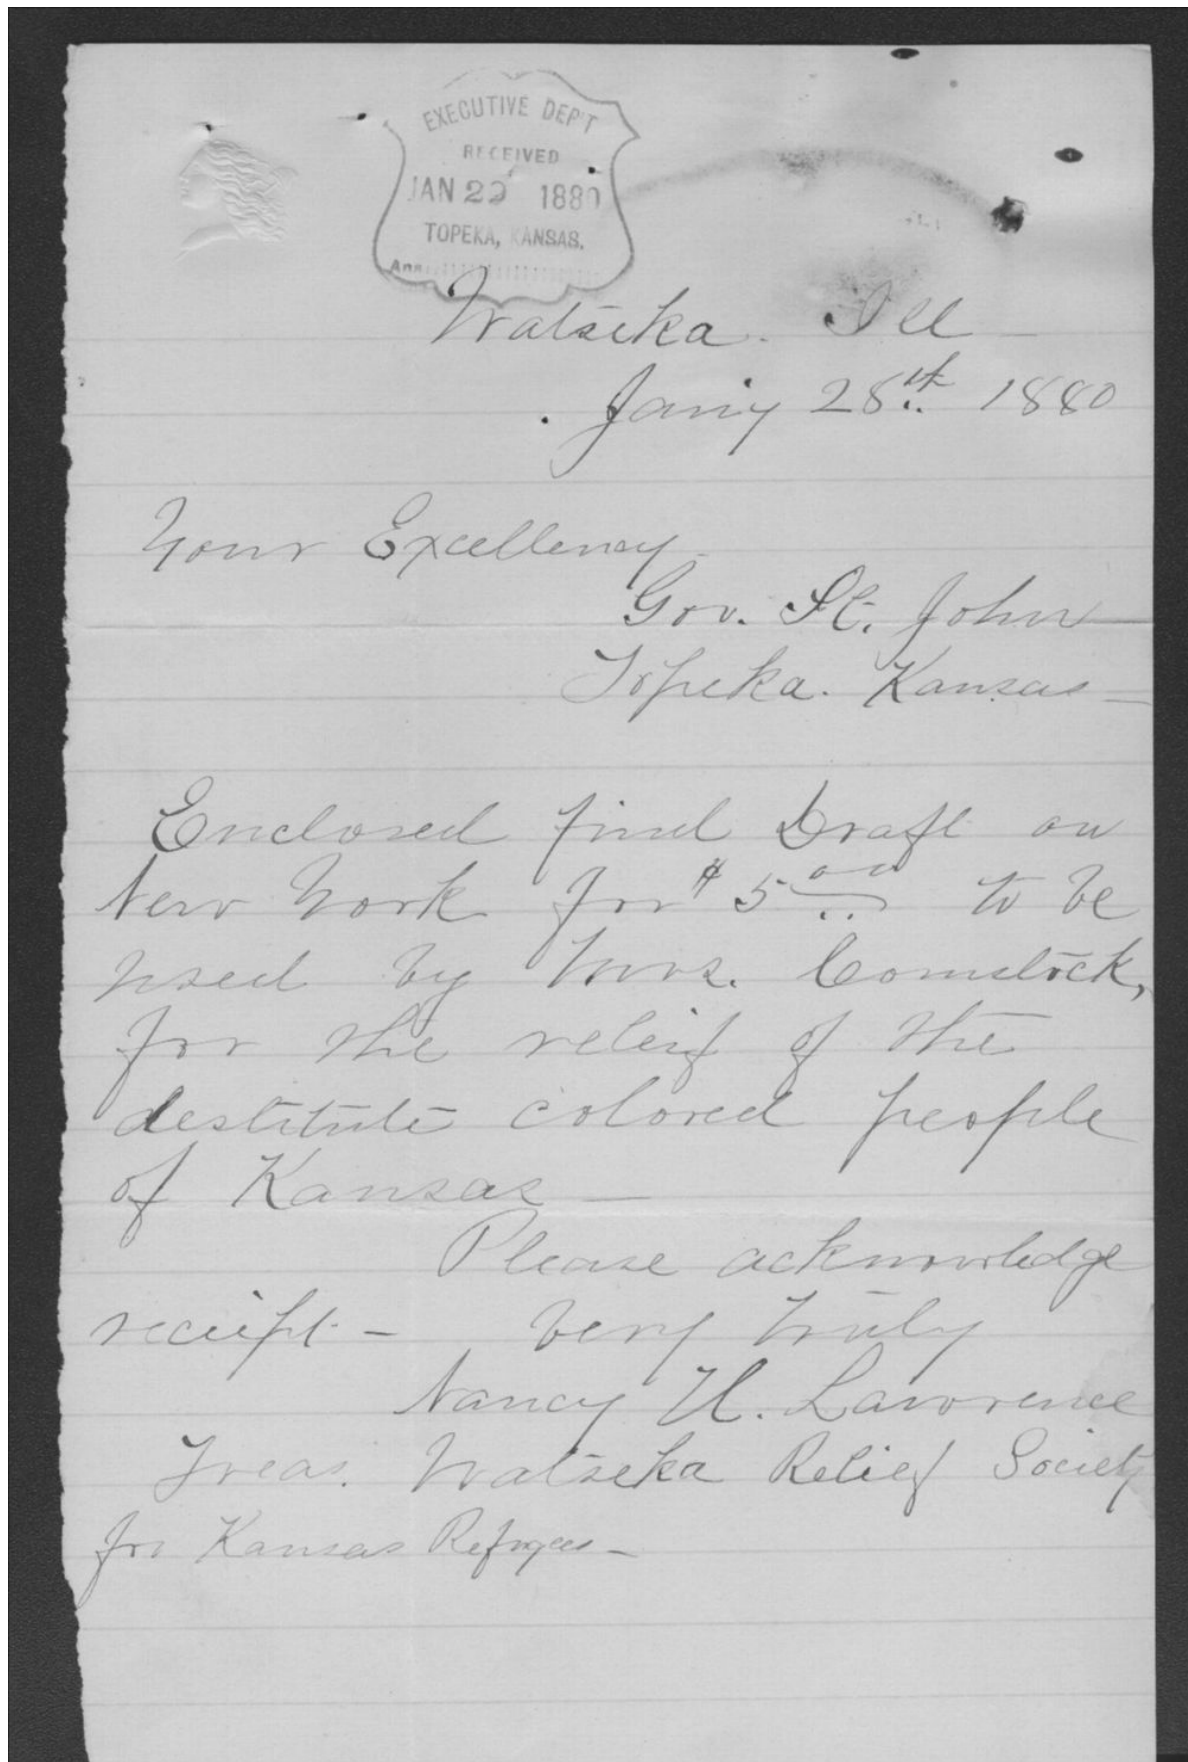 EXECUTIVE DEP'T
RECEIVED
JAN 29 1880
TOPEKA, KANSAS.
Ans
Watseka. Ill
Jany 28th 1880
Your Excellency.
Gov. St. John
Topeka. Kansas
Enclosed find Draft on
New York for $5 00 to be
used by Mrs. Comstock,
for the relief of the
destitute colored people
of Kansas —
Please acknowledge
receipt — Very truly
Nancy U. Lawrence
Treas. Watseka Relief Society
for Kansas Refugees —